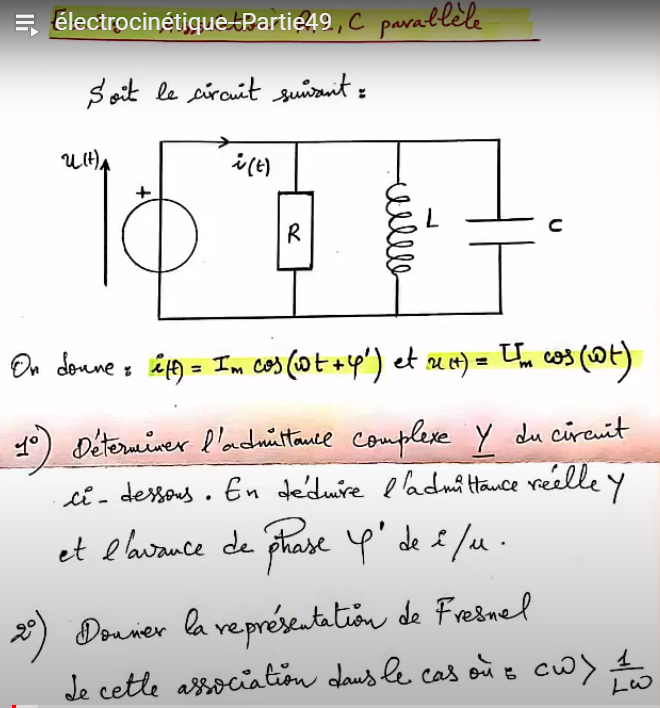 électrocinétique-Partie49
, C parallèle
Soit le circuit suivant :
u(t)
i(t)
+
R
L
C
On donne : i(t) = Im cos(ωt + φ') et u(t) = Um cos(ωt)
1°) Déterminer l'admittance complexe Y du circuit
ci-dessous. En déduire l'admittance réelle Y
et l'avance de phase φ' de i/u.
2°) Donner la représentation de Fresnel
de cette association dans le cas où : Cω > 1/Lω